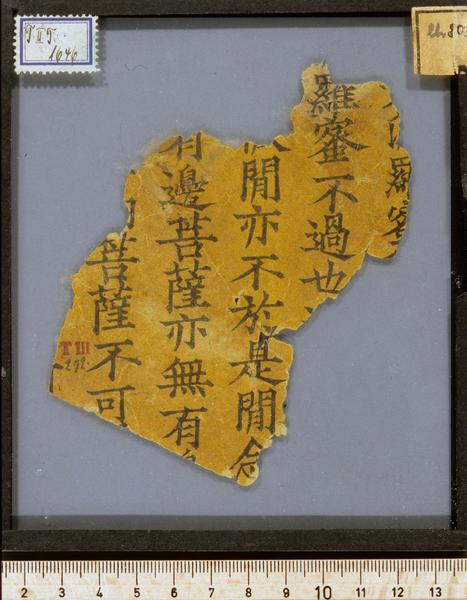 T II T.
1646
羅蜜
羅蜜不過也
閒亦不於是閒
有邊菩薩亦無有
菩薩不可
T III
2 3 4 5 6 7 8 9 10 11 12 13